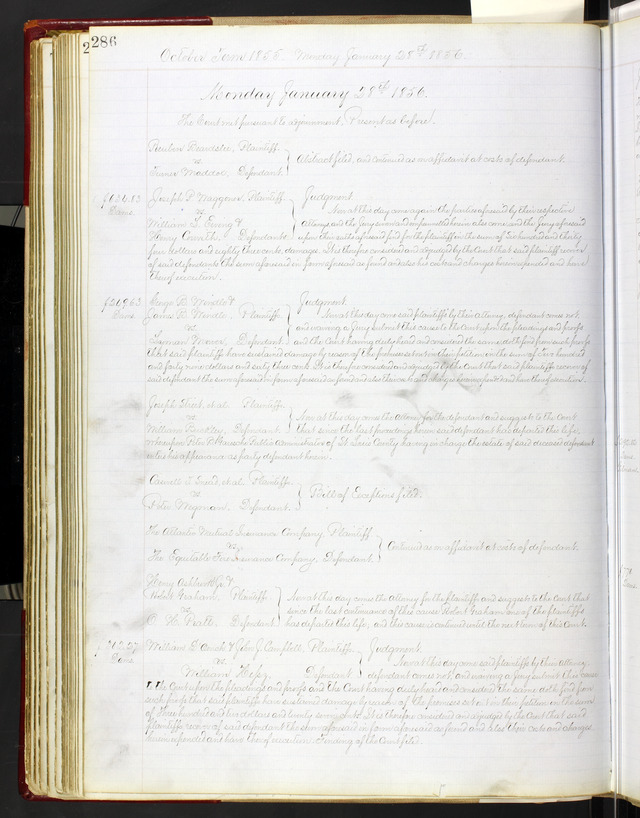 286
October Term 1855. Monday January 28th 1856.
Monday January 28th 1856.
The Court met pursuant to adjournment. Present as before.
Reuben Beardslee, Plaintiff
vs
Francis Maddox, Defendant
Abstract filed, and continued as on affidavit at costs of defendant.
Joseph P. Waggoner, Plaintiff
vs
William L. Ewing &
Henry Defendants
Judgment
Now at this day come again the parties aforesaid by their respective
Attorneys and the Jury sworn and empanneled herein also come, and the Jury aforesaid
upon their oaths aforesaid find for the plaintiff in the sum of Six hundred and thirty
four dollars and eighty three cents, damages. It is therefore considered and adjudged by the Court that said plaintiff recover
of said defendants the sum aforesaid in form aforesaid so found and also his costs and charges herein expended and have
thereof execution.
$249.63
Dams.
George R. &
James R. Plaintiffs
vs
Defendant
Judgment
Now at this day come said plaintiffs by their Attorney, defendant comes not,
and waiving a Jury submit this cause to the Court upon the pleadings and proofs
and the Court having duly heard and considered the same doth find from such proofs
that said plaintiffs have sustained damage by reason of the premises set out in their petition in the sum of Two hundred
and forty nine dollars and sixty three cents. It is therefore considered and adjudged by the Court that said plaintiffs recover of
said defendant the sum aforesaid in form aforesaid so found and also their costs and charges herein expended and have thereof execution.
Joseph et al. Plaintiffs
vs
William Defendant
Now at this day comes the Attorney for the defendant and suggests to the Court
that since the last proceedings herein said defendant has departed this life,
whereupon Peter Public administrator of St. Louis County having in charge the estate of said deceased defendant
enters his appearance as party defendant herein.
et al. Plaintiffs
vs
Peter Defendant
Bill of Exceptions filed.
The Atlantic Mutual Insurance Company, Plaintiff
vs
The Equitable Fire Insurance Company, Defendant
Continued as on affidavit at costs of defendant.
Henry &
Robert Graham, Plaintiffs
vs
Defendant
Now at this day comes the Attorney for the plaintiffs and suggests to the Court
that since the last continuance of this cause Robert Graham one of the plaintiffs
has departed this life, and this cause is continued until the next term of this Court.
Dams.
William D. & John J. Campbell, Plaintiffs
vs
William Defendant
Judgment
Now at this day come said plaintiffs by their Attorney
defendant comes not, and waiving a Jury submit this cause
to the Court upon the pleadings and proofs and the Court having duly heard and considered the same doth find from
such proofs that said plaintiffs have sustained damage by reason of the premises set out in their petition in the sum
of Three hundred and two dollars and twenty seven cents. It is therefore considered and adjudged by the Court that said
plaintiffs recover of said defendant the sum aforesaid in form aforesaid so found and also their costs and charges
herein expended and have thereof execution. Finding of the Court filed.